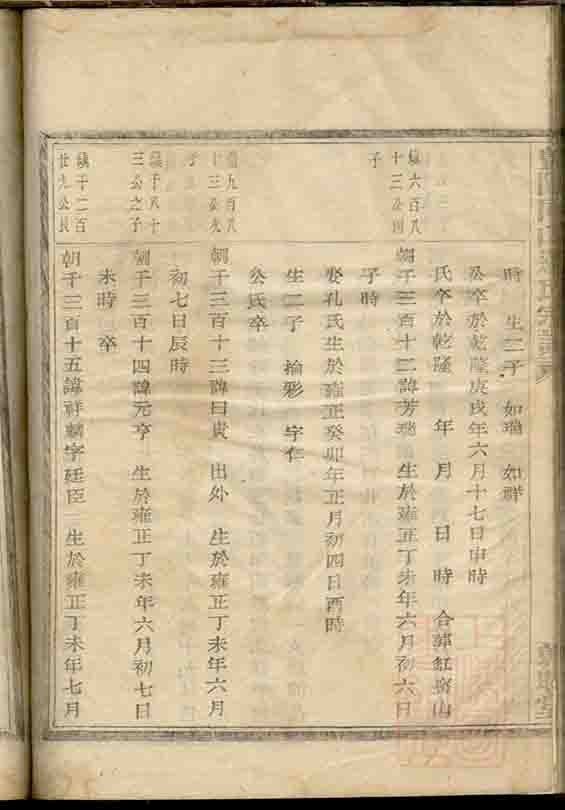 時 生二子 如瑞 如祥
公卒於乾隆庚戌年六月十七日申時
氏卒於乾隆 年 月 日 時 合葬紅窑山
鎮六百八
十三公四
子
朝千三百十二諱芳瑞 生於雍正丁未年六月初六日
子時
娶孔氏生於雍正癸卯年正月初四日酉時
生二子 掄彩 守仁
公氏卒
鎮九百八
十三公九
子
朝千三百十三諱曰貴 出外 生於雍正丁未年六月
初七日辰時
鎮千八十
三公之子
朝千三百十四諱元亨 生於雍正丁未年六月初七日
未時 卒
鎮千二百
廿九公長
朝千三百十五諱祥麟字廷臣 生於雍正丁未年七月